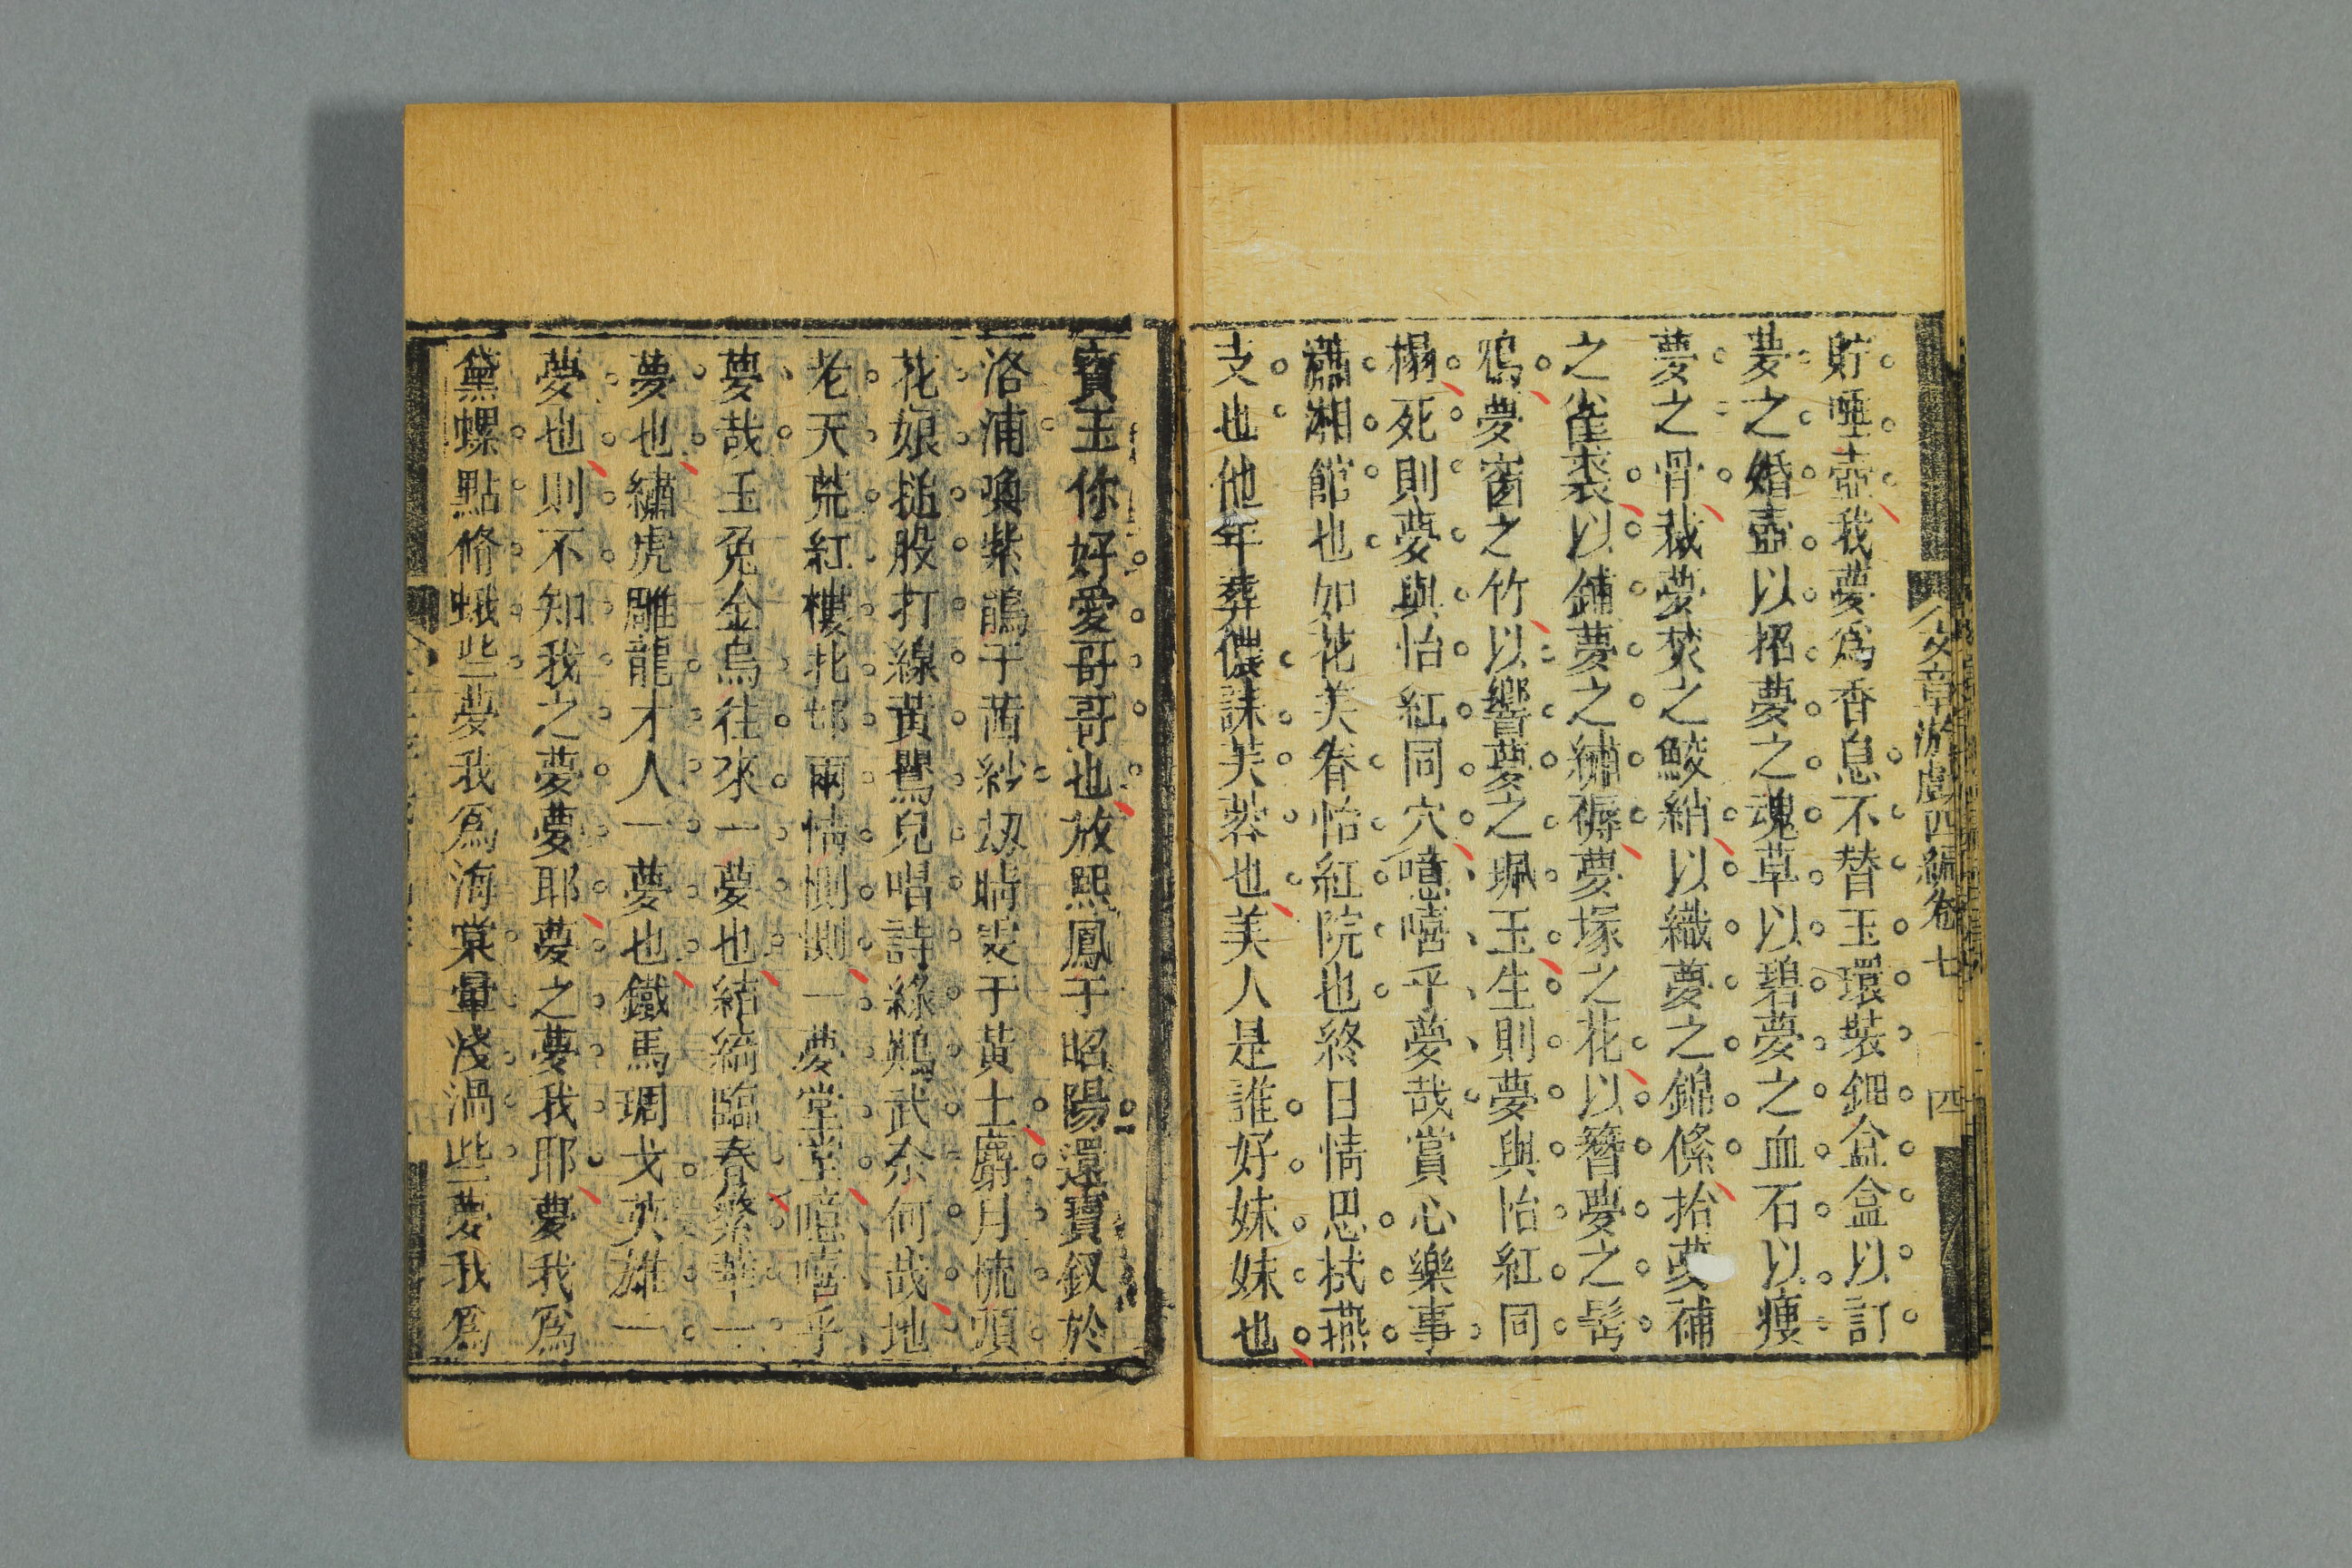 貯唾壺我夢爲香息不替玉環裝鈿盒盒以訂
夢之婚壺以招夢之魂草以碧夢之血石以瘞
夢之骨裁夢焚之鮫綃以織夢之錦絛抬夢補
之雀裘以鋪夢之繡褥夢塚之花以簪夢之髻
鴉夢窗之竹以響夢之珮玉生則夢與怡紅同
榻死則夢與怡紅同穴噫嘻乎夢哉賞心樂事
瀟湘館也如花美眷怡紅院也終日情思拭燕
支也他年葬儂誄芙蓉也美人是誰好妹妹也
文章游戲四編卷七 四
寶玉你好愛哥哥也放熙鳳于昭陽還寶釵於
洛浦喚紫鵑于茜紗劫晴雯于黃土麝月梳頭
花娘搥股打線黃鶯兒唱詩綠鸚武奈何哉地
老天荒紅樓北邙兩情惻惻一夢堂堂噫嘻乎
夢哉玉兔金烏往來一夢也結綺臨春繁華一
夢也繡虎雕龍才人一夢也鐵馬琱戈英雄一
夢也則不知我之夢夢耶夢之夢我耶夢我爲
黛螺點脩蛾些夢我爲海棠暈淺渦些夢我爲